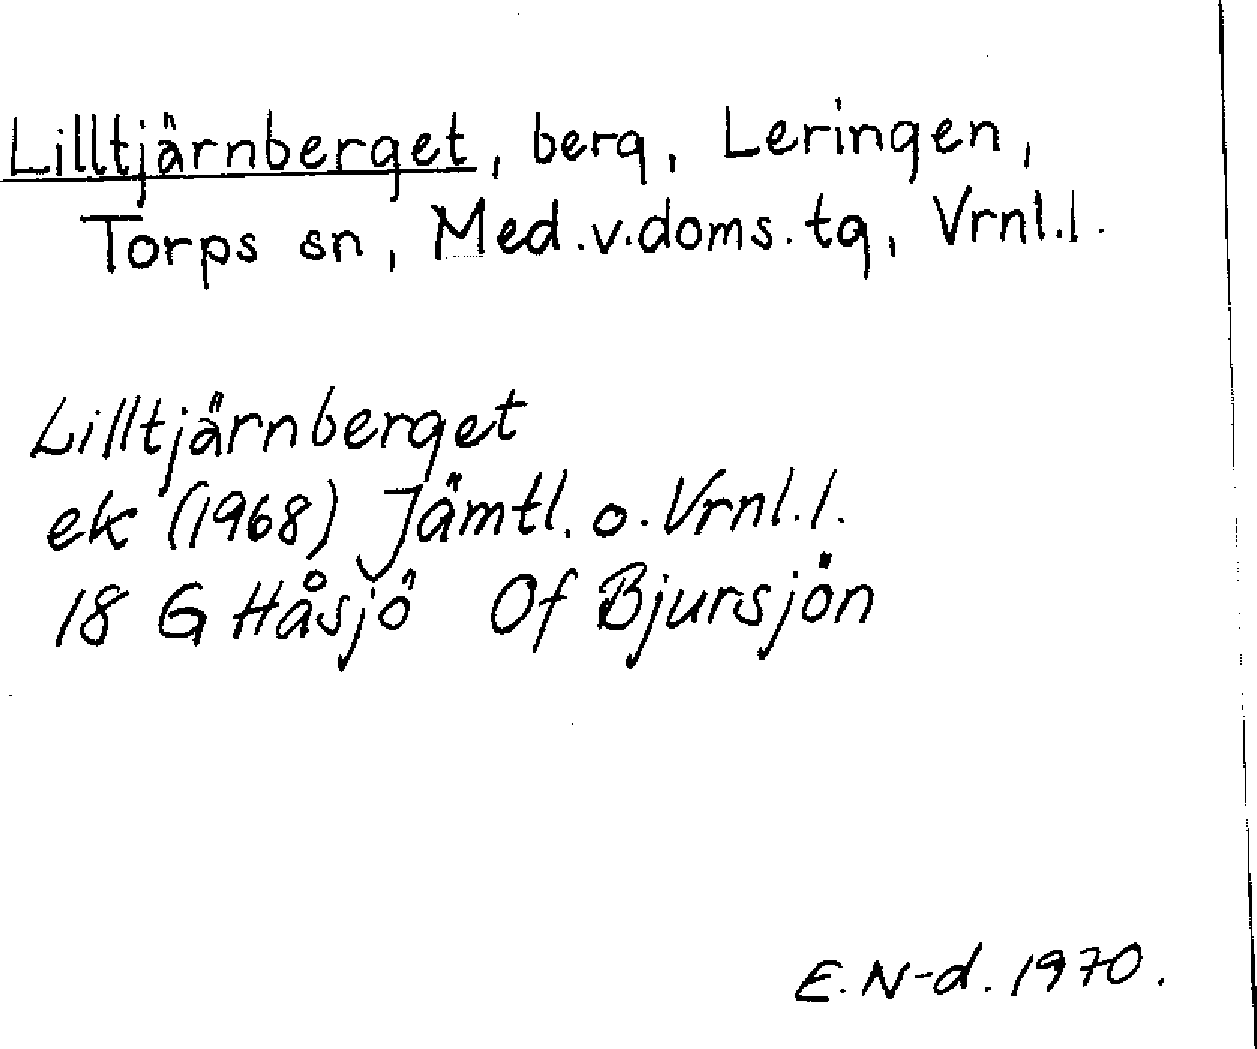 Lilltjärnberget, berg, Leringen,
Torps sn, Med.v.doms.tg, Vrnl.l.
Lilltjärnberget
ek (1968) Jämtl. o. Vrnl.l.
18 G Håsjö Of Bjursjön
E. N-d. 1970.